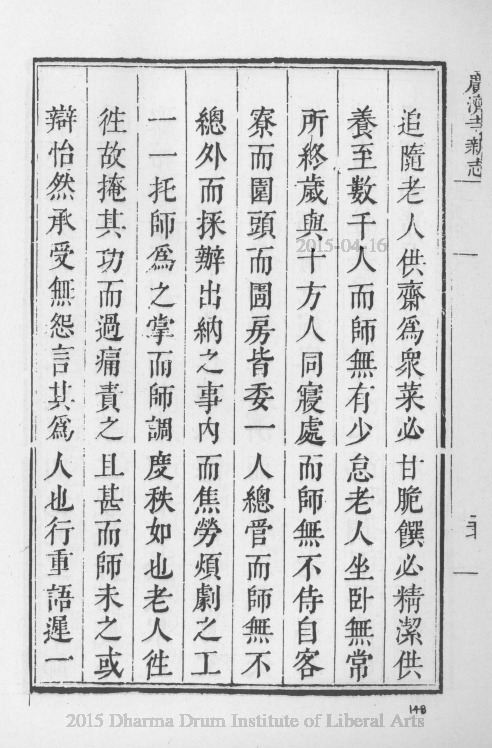 廣濟寺新志
追隨老人供齋爲衆菜必甘脆饌必精潔供
養至數千人而師無有少怠老人坐卧無常
所終歲與十方人同寢處而師無不侍自客
寮而園頭而圊房皆委一人總管而師無不
總外而採辦出納之事內而焦勞煩劇之工
一一托師爲之掌而師調度秩如也老人徃
徃故掩其功而過痛責之且甚而師未之或
辯怡然承受無怨言其爲人也行重語遲一
148
2015-04-16
2015 Dharma Drum Institute of Liberal Arts